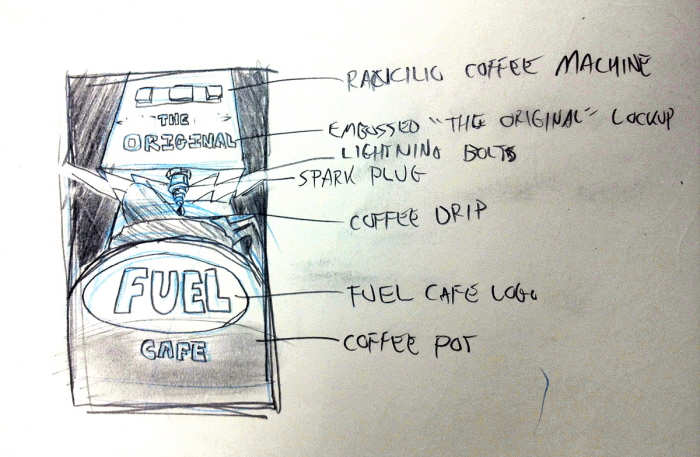 THE
ORIGINAL
FUEL
CAFE
RANCILIO COFFEE MACHINE
EMBOSSED "THE ORIGINAL" LOCKUP
LIGHTNING BOLTS
SPARK PLUG
COFFEE DRIP
FUEL CAFE LOGO
COFFEE POT